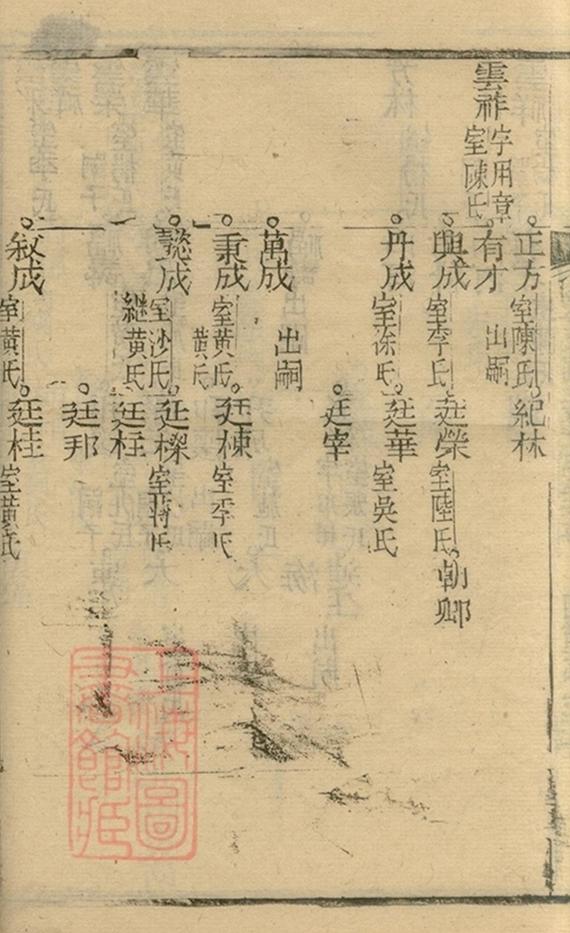 正方 室陳氏 紀林
雲祚 字用章 室陳氏 有才 出嗣
興成 室李氏 廷榮 室陸氏 朝卿
丹成 室徐氏 廷華 室吳氏
廷宰
萬成 出嗣
秉成 室黄氏 黄氏 廷棟 室李氏
懿成 室沙氏 継黄氏 廷樑 室蒋氏
廷枉
廷邦
敘成 室黄氏 廷桂 室黄氏
圖
書館